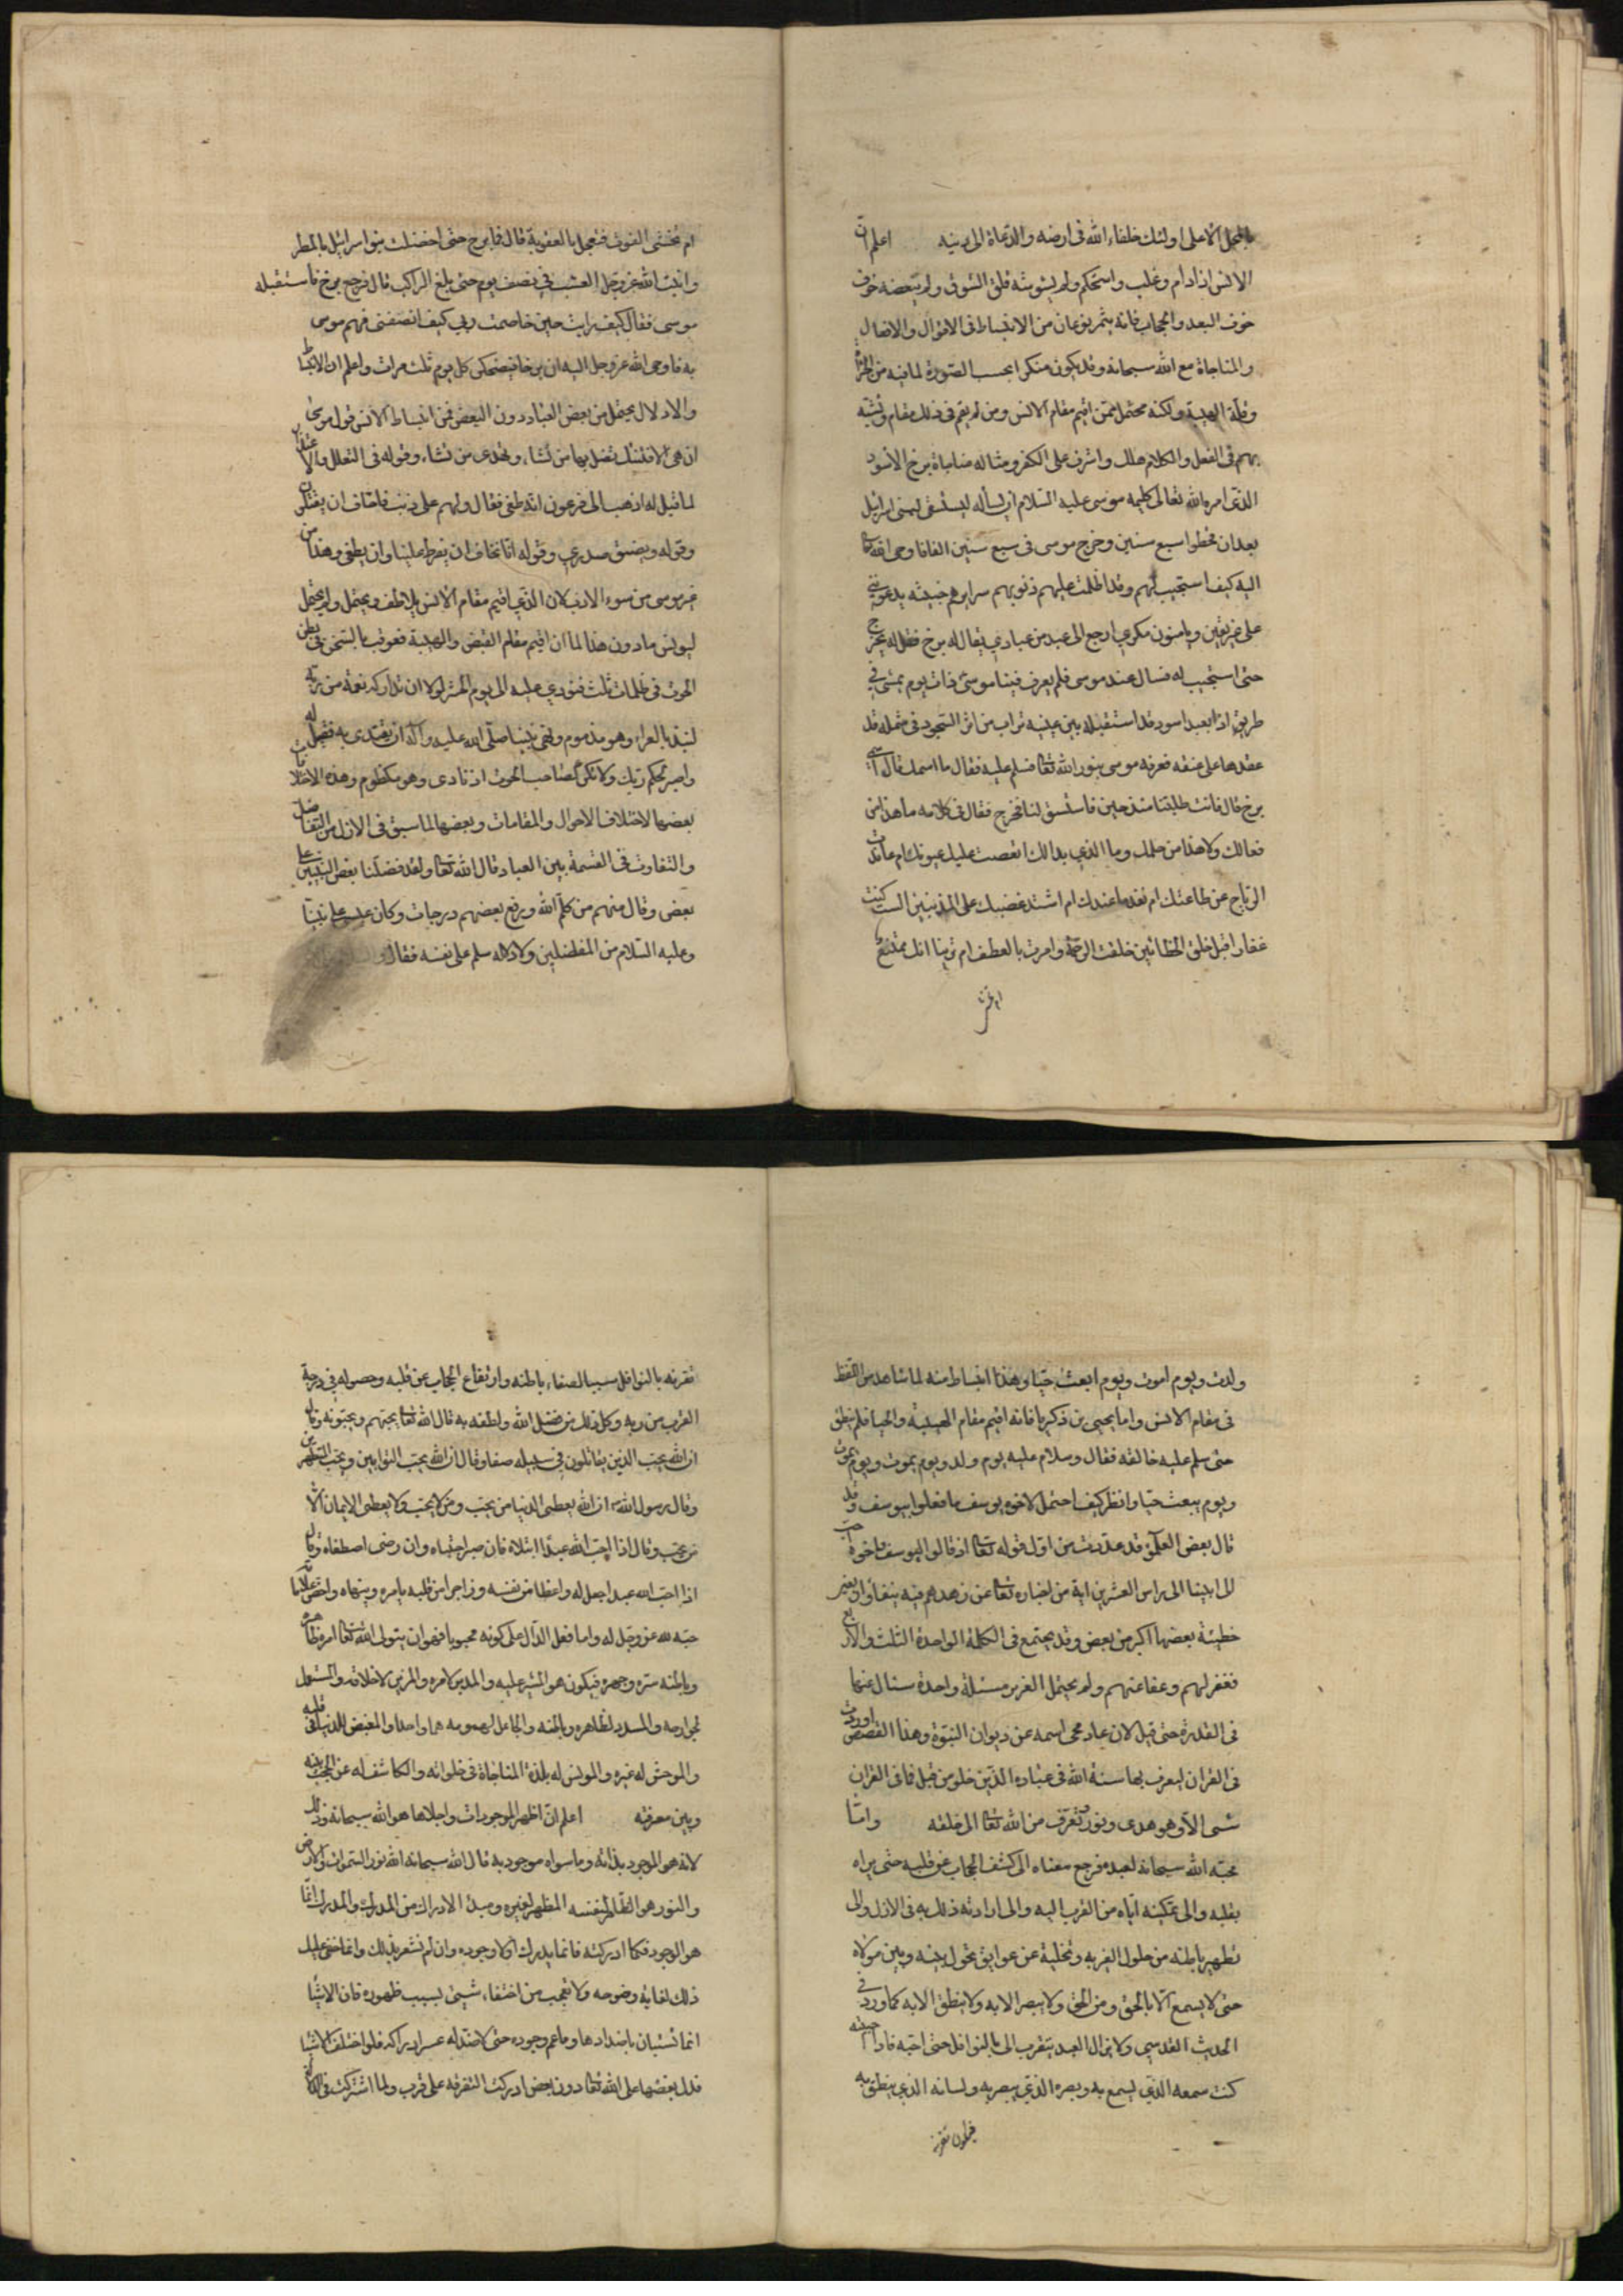 بالمحل الاعلى اولئك خلفاء الله فى ارضه والدعاة الى دينه اعلم ان
الانس اذا دام وغلب واستحكم ولم يشوشه قلق الشوق ولم ينغصه خوف
خوف البعد والحجاب فانه يثمر نوعا من الانبساط فى الاقوال والافعال
والمناجاة مع الله سبحانه وقد يكون منكرا بحسب الصورة لما فيه من الجرأة
وقلة الهيبة ولكنه محتمل ممن اقيم مقام الانس ومن لم يقم فى ذلك مقام وتشبه
بهم فى الفعل والكلام هلك واشرف على الكفر ومثاله مناجاة برخ الاسود
الذى امر الله تعالى كليمه موسى عليه السلام ان يسأله ليستسقى لبنى اسرائيل
بعد ان قحطوا سبع سنين وخرج موسى فى سبعين الفا فاوحى الله تعا
اليه كيف استجيب لهم وقد اظلمت عليهم ذنوبهم سرايرهم خبيثه يدعوننى
على غير يقين ويامنون مكرى ارجع الى عبد من عبادى يقال له برخ فقل له يخرج
حتى استجيب له فسال عنه موسى فلم يعرف فبينا موسى ذات يوم يمشى فى
طريق اذا بعبد اسود قد استقبله بين عينيه تراب من اثر السجود فى شمله قد
عقدها على عنقه فعرفه موسى بنور الله تعا فسلم عليه فقال ما اسمك قال اسمى
برخ قال فانت طلبتنا منذ حين فاستسق لنا فخرج فقال فى كلامه ما هذا من
فعالك ولا هذا من حلمك وما الذى بدا لك انقصت عليك عيونك ام عاندت
الرياح عن طاعتك ام نفد ما عندك ام اشتد غضبك على المذنبين الست كنت
غفارا قبل خلق الخطائين خلقت الرحمة وامرت بالعطف ام ترينا انك ممتنع
ام تخشى
ام تخشى الفوت فتعجل بالعقوبة قال فما برح حتى اخضلت بنو اسرائيل بالمطر
وانبت الله عز وجل العشب فى نصف يوم حتى بلغ الراكب قال فرجع برخ فاستقبله
موسى فقال كيف رايت حين خاصمت ربى كيف انصفنى فهم موسى
به فاوحى الله عز وجل اليه ان برخا يضحكنى كل يوم ثلث مرات واعلم ان الانبساط
والادلال يحتمل من بعض العباد دون البعض فمن انبساط الانس قول موسى
ان هى الا فتنتك تضل بها من تشاء وتهدى من تشاء وقوله فى التعلل والاعتذار
لما قيل له اذهب الى فرعون انه طغى فقال ولهم على ذنب فاخاف ان يقتلون
وقوله ويضيق صدرى وقوله اننا نخاف ان يفرط علينا وان يطغى وهذا من
غير موسى من سوء الادب لان الذى اقيم مقام الانس يلاطف ويحتمل ولم يحتمل
ليونس ما دون هذا لما ان اقيم مقام القبض والهيبة فعوقب بالسجن فى بطن
الحوت فى ظلمات ثلث فنودى عليه الى يوم الحشر لولا ان تداركه نعمة من ربه
لنبذ بالعراء وهو مذموم ونهى نبينا صلى الله عليه وآله ان يقتدى به فقيل له
واصبر لحكم ربك ولا تكن كصاحب الحوت اذ نادى وهو مكظوم وهذه الاختلافات
بعضها لاختلاف الاحوال والمقامات وبعضها لما سبق فى الازل من التفاضل
والتفاوت فى القسمة بين العباد قال الله تعا ولقد فضلنا بعض النبيين على
بعض وقال منهم من كلم الله ورفع بعضهم درجات وكان عيسى على نبينا
وعليه السلام من المفضلين ولادلاله سلم على نفسه فقال
ولدت ويوم اموت ويوم ابعث حيا وهذا انبساط منه لما شاهد من اللطف
فى مقام الانس واما يحيى بن زكريا فانه اقيم مقام الهيبة والحيا فلم ينطق
حتى سلم عليه خالقه فقال وسلام عليه يوم ولد ويوم يموت ويوم
ويوم يبعث حيا وانظر كيف احتمل لاخوه يوسف ما فعلوا بيوسف وقد
قال بعض العلماء قد عددت من اول قوله تعا اذ قالوا ليوسف واخوه احب
الى ابينا الى راس العشرين اية من اخباره تعا عن زهدهم فيه نيفا واربعين
خطيئة بعضها اكبر من بعض وقد يجتمع فى الكلمة الواحدة الثلث والاربع
فغفر لهم وعفا عنهم ولم يحتمل لعزير مسئلة واحدة سئال عنها
فى القدر حتى قيل لان عاد محى اسمه عن ديوان النبوة وهذا القصص اوردت
فى القران ليعرف بها سنة الله فى عباده الذين خلو من قبل فما فى القران
شىء الا وهو هدى ونور وتعرف من الله تعا الى خلقه واما
محبة الله سبحانه لعبده فمرجع معناه الى كشف الحجاب عن قلبه حتى يراه
بقلبه والى تمكينه اياه من القرب اليه والى ارادته ذلك به فى الازل والى
تطهير باطنه من حلول الغير به وتخليه عن عوايق تحول بينه وبين مولاه
حتى لا يسمع الا بالحق ومن الحق ولا يبصر الا به ولا ينطق الا به كما ورد فى
الحديث القدسى ولا يزال العبد يتقرب الى بالنوافل حتى احبه فاذا احببته
كنت سمعه الذى يسمع به وبصره الذى يبصر به ولسانه الذى ينطق به
فيكون تقربه
تقربه بالنوافل سببا لصفاء باطنه وارتفاع الحجاب عن قلبه وحصوله فى درجة
القرب من ربه وكل ذلك من فضل الله ولطفه به قال الله تعا يحبهم ويحبونه وقال
ان الله يحب الذين يقاتلون فى سبيله صفا وقال ان الله يحب التوابين ويحب المتطهرين
وقال رسول الله ان الله يعطى الدنيا من يحب ومن لا يحب ولا يعطى الايمان الا
من يحب وقال اذا احب الله عبدا ابتلاه فان صبر اجتباه وان رضى اصطفاه وقال
اذا احب الله عبدا جعل له واعظا من نفسه وزاجرا من قلبه يامره وينهاه واخص علاماته
حبه لله عز وجل له واما فعل الدال على كونه محبوبا فهو ان يتولى الله تعا امره ظاهره
وباطنه سره وجهره فيكون هو المشير عليه والمدبر لامره والمزين لاخلاقه والمستعمل
لجوارحه والمسدد لظاهره وباطنه والجاعل لهمومه هما واحدا والمبغض للدنيا فى قلبه
والموحش له غيره والمونس له بلذة المناجاة فى خلواته والكاشف له عن الحجب بينه
وبين معرفته اعلم ان اظهر الموجودات واجلاها هو الله سبحانه وذلك
لانه هو الموجود بذاته وما سواه موجود به قال الله سبحانه الله نور السموات والارض
والنور هو الظاهر لنفسه المظهر لغيره ومبدء الادراك من المدرك والمدرك انما
هو الوجود فكلما ادركته فانما يدرك اولا وجوده وان لم تشعر بذلك وانما خفى عليك
ذلك لغاية وضوحه ولا تعجب من اختفاء شىء بسبب ظهوره فان الاشيا
انما تستبان باضدادها وما عم وجوده حتى لا ضد له عسر ادراكه فلو اختلفت الاشيا
فدل بعضها على الله تعا دون بعض ادركت التفرقة على قرب ولما اشتركت فى الدلالة